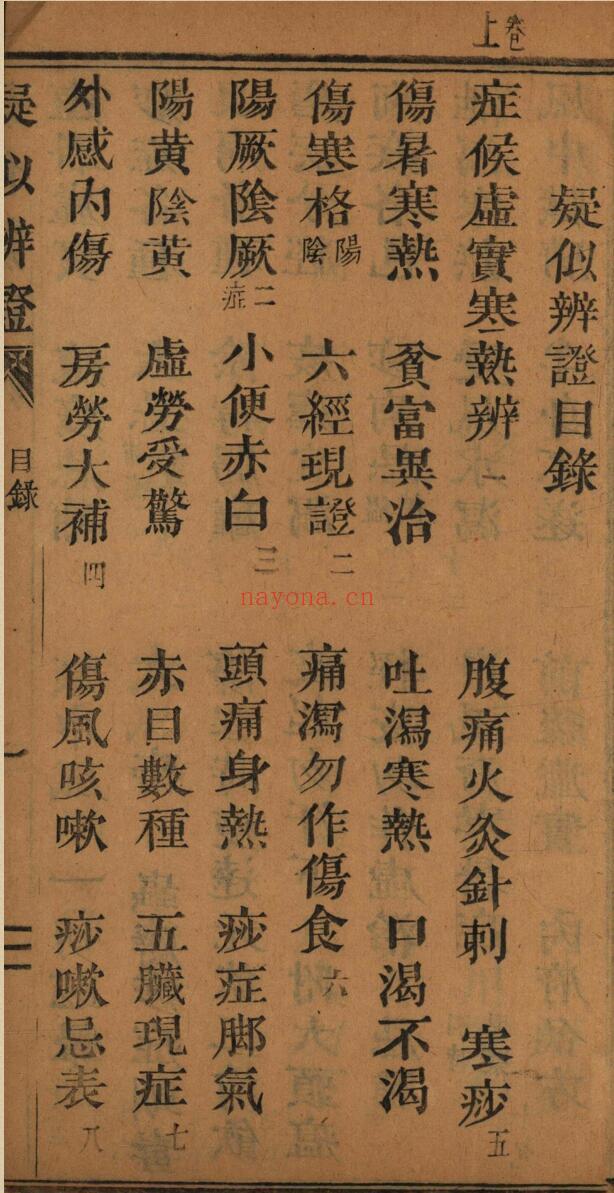 卷上
疑似辨證目錄
症候虛實寒熱辨 一 腹痛火灸針刺 寒痧 五
傷暑寒熱 貧富異治 吐瀉寒熱 口渴不渴
傷寒格陽陰 六經現證 二 痛瀉勿作傷食 六
陽厥陰厥二症 小便赤白 三 頭痛身熱 痧症脚氣
陽黃陰黃 虛勞受驚 赤目數種 五臟現症 七
外感內傷 房勞大補 四 傷風咳嗽 痧嗽忌表 八
疑似辨證 目錄
nayona.cn